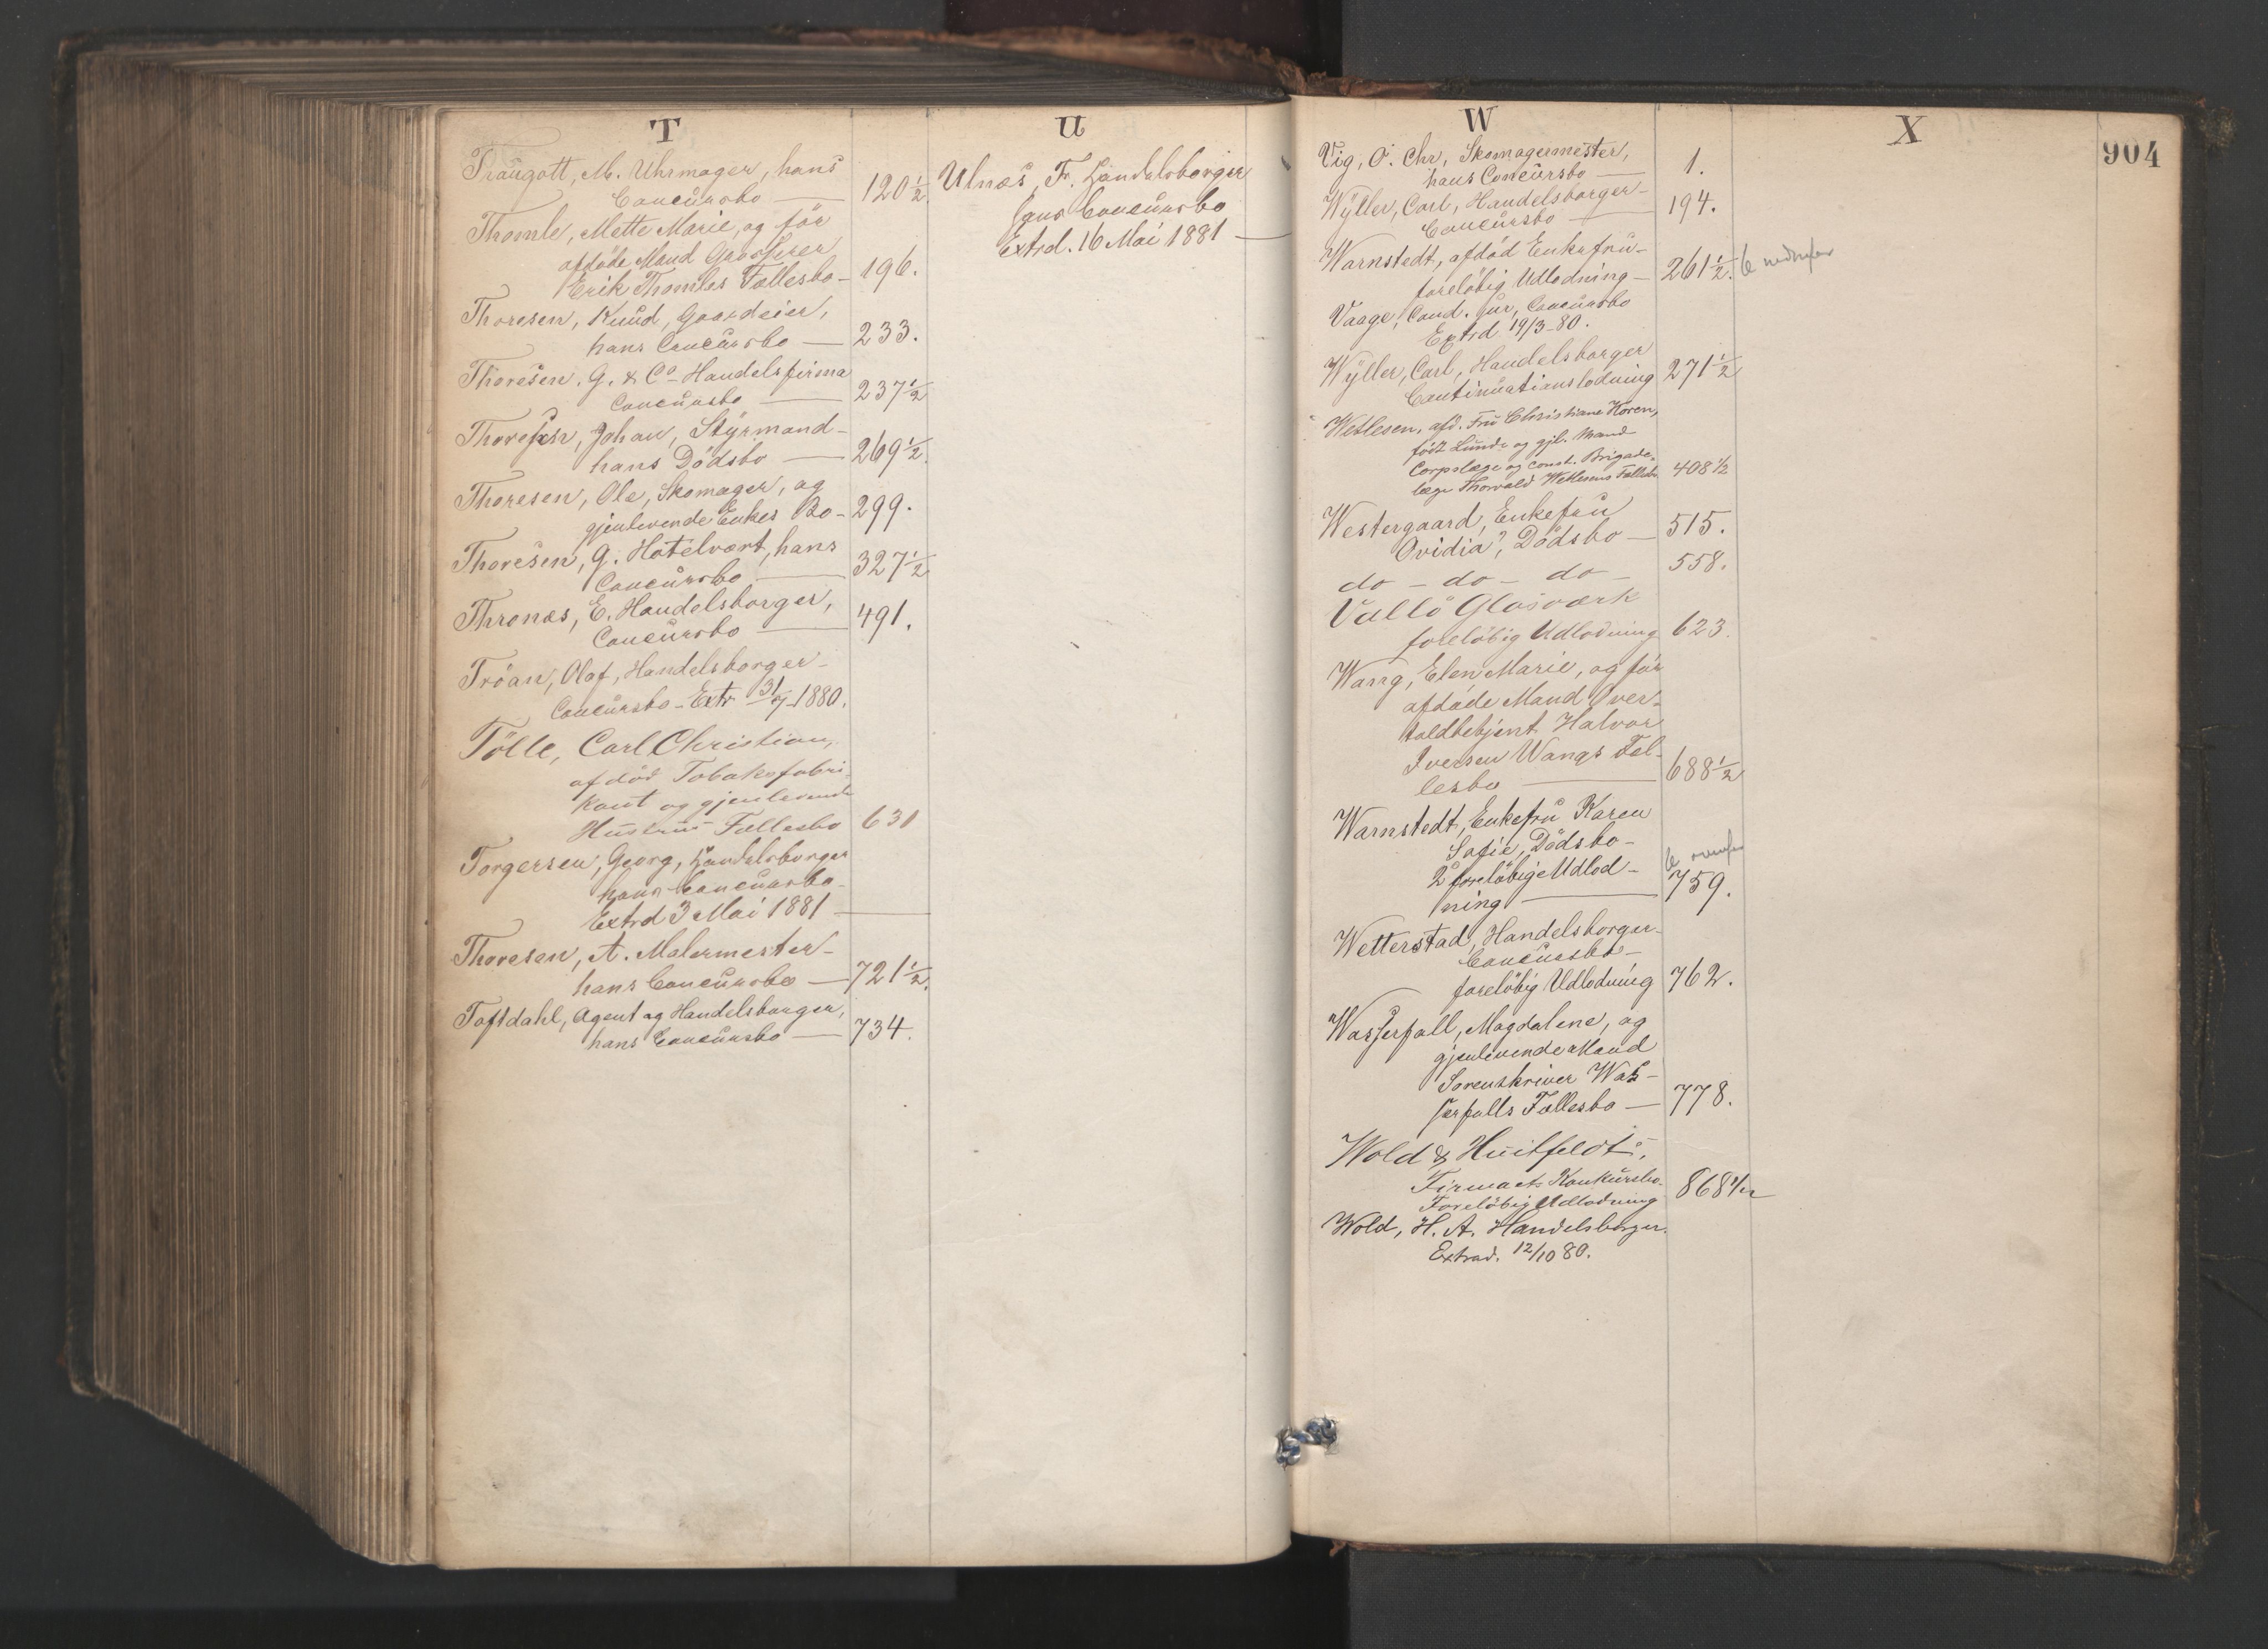 T
Traugott, M. Uhrmager, hans
Concursbo — 120 1/2.
Thomle, Mette Marie, og før
afdøde Mand Grosserer
Erik Thomles Fællesbo — 196.
Thoresen, Knud, Gaardeier,
hans Concursbo — 233.
Thoresen. G. & Co Handelsfirma
Concursbo — 237 1/2
Thoresen, Johan, Styrmand —
hans Dödsbo — 269 1/2.
Thoresen, Ole, Skomager, og
gjenlevende Enkes Bo — 299.
Thoresen, G. Hotelvært, hans
Concursbo — 327 1/2
Thrones, E. Handelsborger,
Concursbo — 491.
Tröan, Olaf, Handelsborger —
Concursbo — Extr 31/7 1880.
Tölle, Carl Christian,
afdöd Tobaksfabri-
kant og gjenlevende
Hustrus Fællesbo 631
Torgersen, Georg, Handelsborger
hans Concursbo —
Extrd 3 Mai 1881 —
Thoresen, A. Malermester —
hans Concursbo — 721 1/2.
Toftdahl, Agent og Handelsborger,
hans Concursbo — 734.
U
Ulnæs, F. Handelsborger
hans Concursbo
Extrd. 16 Mai 1881 —
W
Vig, O. Chr, Skomagermester,
hans Concursbo — 1.
Wÿller, Carl, Handelsborger —
Concursbo — 194.
Warnstedt, afdöd Enkefru —
foreløbig Udlodning — 261 1/2. nedenfor
Vaage, Cand. jur, Concursbo
Extrd 19/3-80.
Wÿller, Carl, Handelsborger
Continuationslodning 271 1/2
Wetlesen, afd. Fru Christiane Koren,
født Lund og gjl. Mand
Corpslæge og const. Brigade-
læge Thorvald Wetlesens Fællesbo 408 1/2
Westergaard, Enkefru
Ovidia?, Dödsbo — 515.
do — do — do — 558.
Vallö Glasværk
foreløbig Udlodning 623.
Wang, Elen Marie, og før
afdøde Mand Over-
toldbetjent Halvor
Iversen Wangs Fæl-
lesbo — 688 1/2
Warnstedt, Enkefru Karen
Sofie, Dödsbo —
2 foreløbige Udlod-
ning — 759.
Wetterstad, Handelsborger —
Concursbo —
foreløbig Udlodning 762.
Wasserfall, Magdalene, og
gjenlevende Mand
Sorenskriver Was-
serfalls Fællesbo — 778.
Wold & Huitfeldt,
Firmaets Konkursbo.
Foreløbig Udlodning 868 1/2
Wold, H. A. Handelsborger.
Extrad. 12/10 80.
X
904